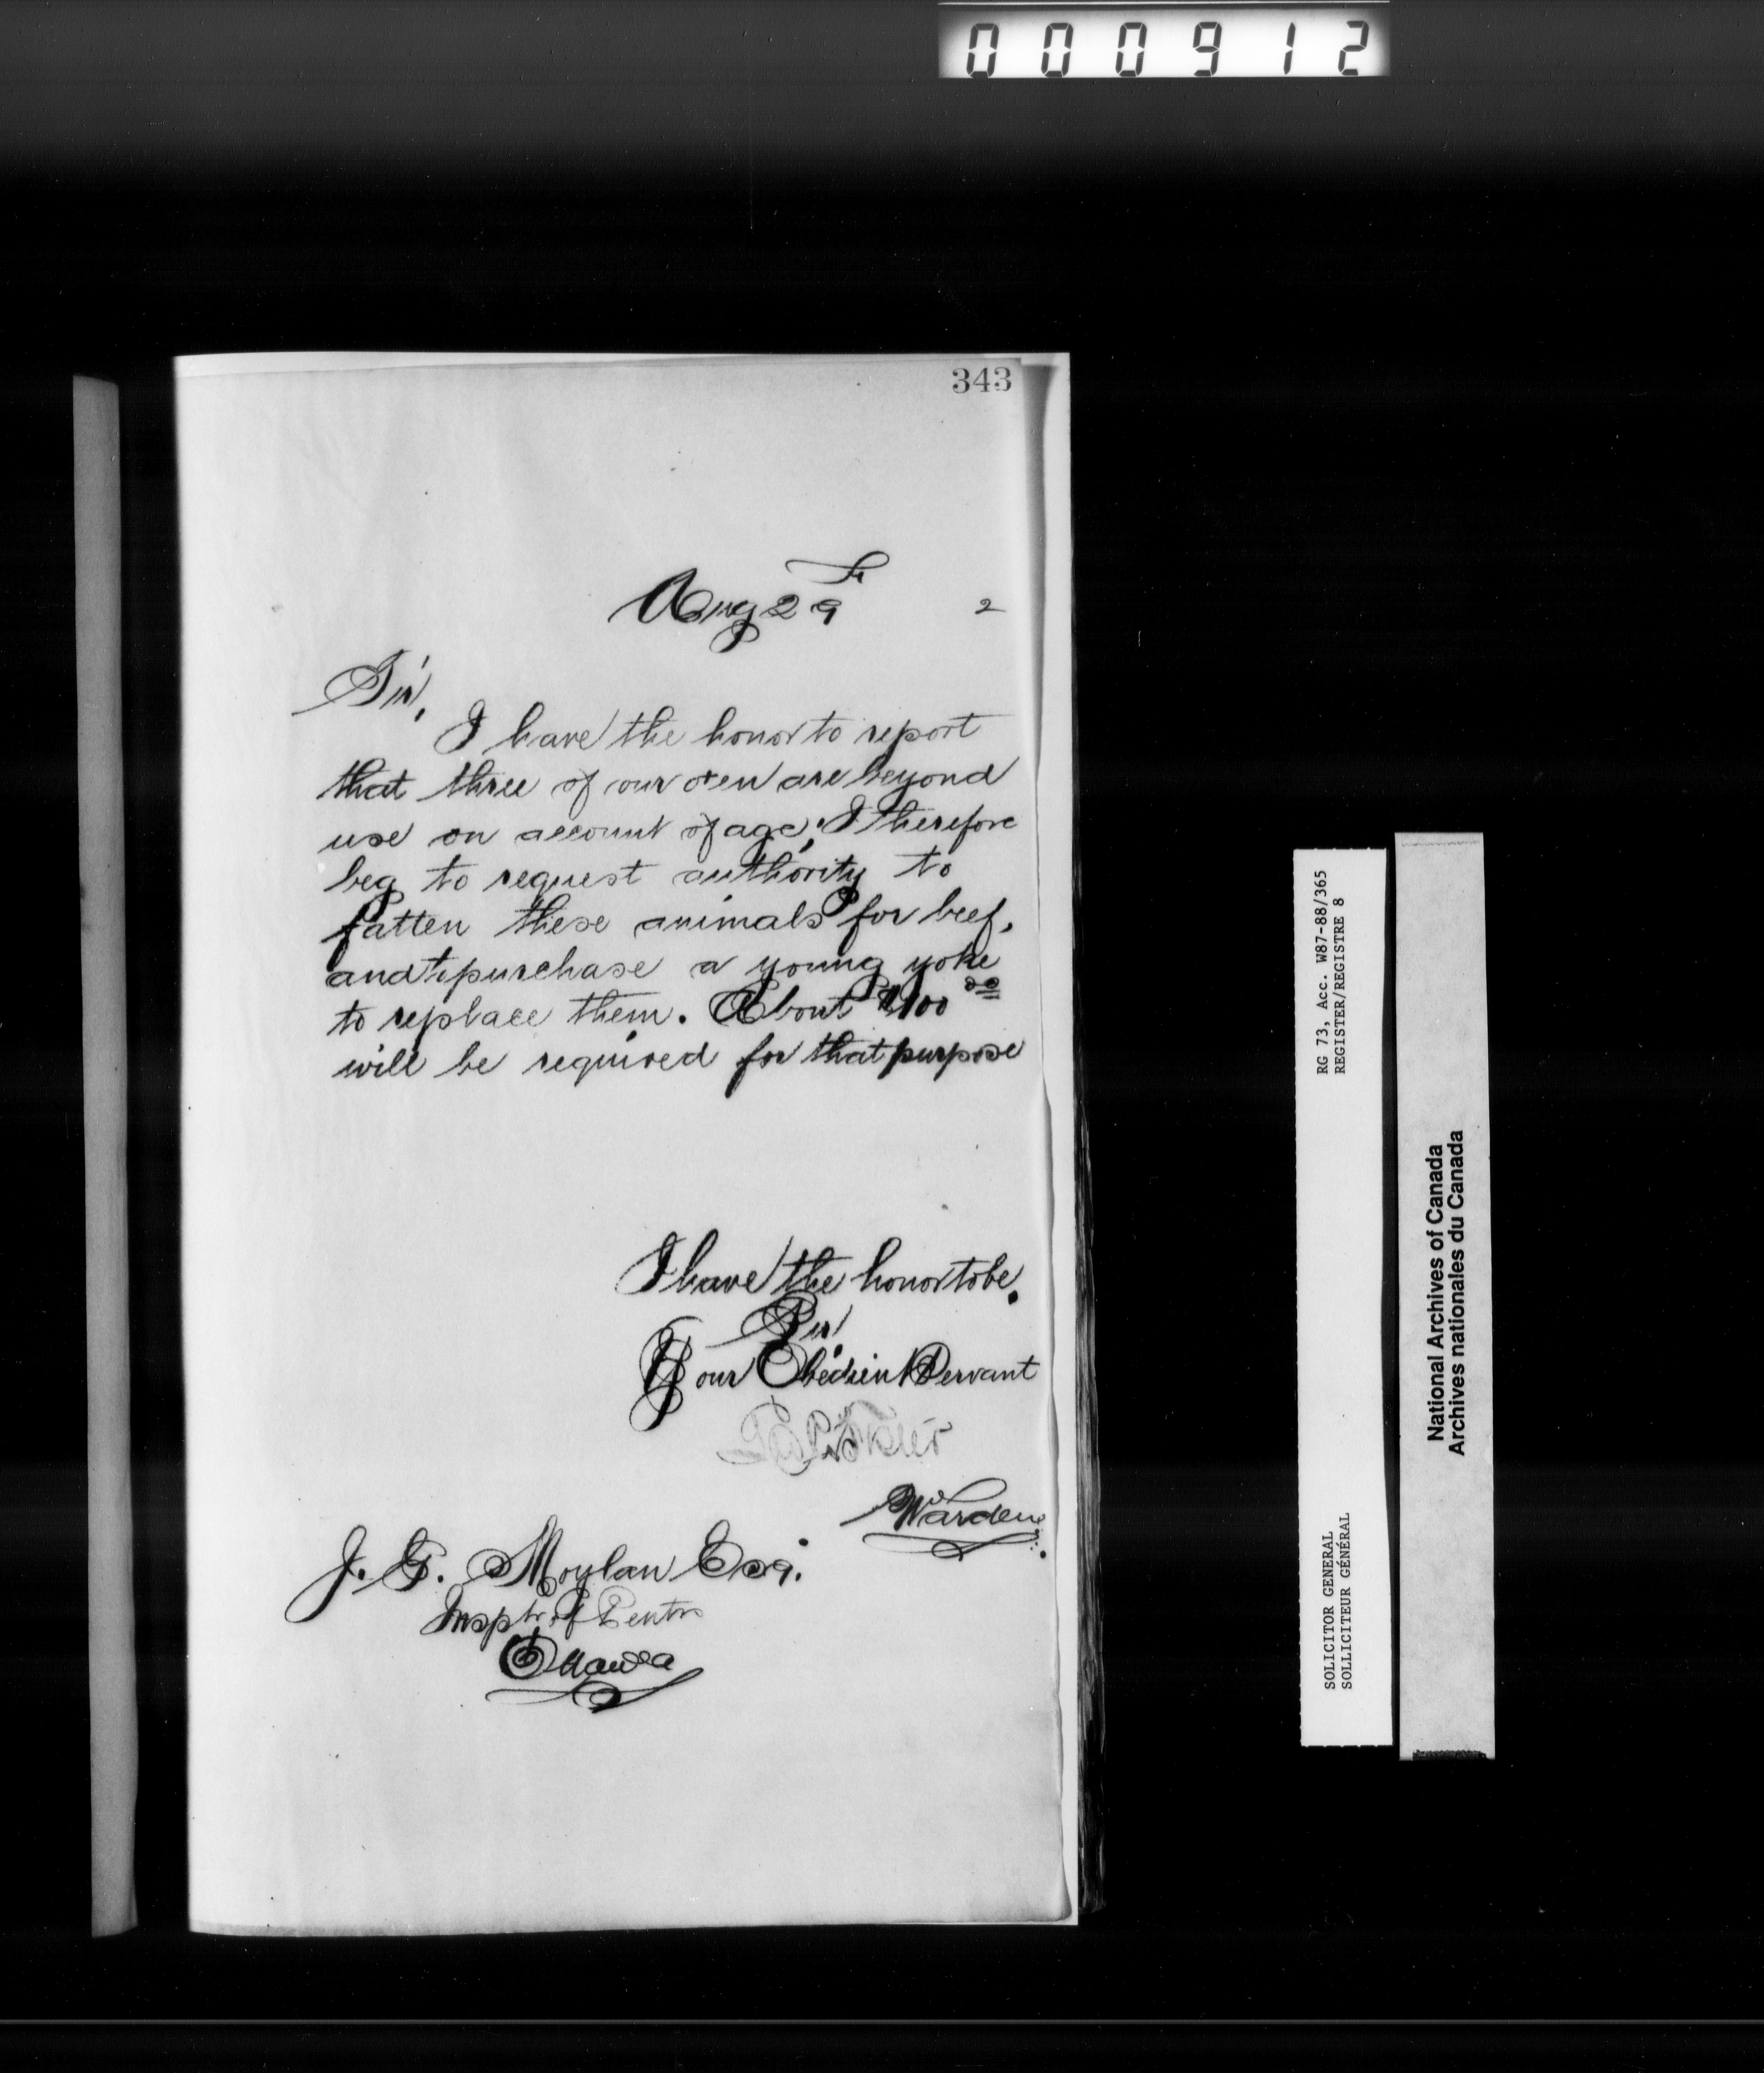 000912
343
Aug 29th 2
Sir,
I have the honor to report
that three of our oxen are beyond
use on account of age; I therefore
beg to request authority to
fatten these animals for beef,
and to purchase a young yoke
to replace them. About $100 00
will be required for that purpose
I have the honor to be,
Sir,
Your Obedient Servant
Warden
J. G. Moylan Esq.
Insptr of Pentrs
Ottawa
RG 73, Acc. W87-88/365
REGISTER/REGISTRE 8
SOLICITOR GENERAL
SOLLICITEUR GÉNÉRAL
National Archives of Canada
Archives nationales du Canada